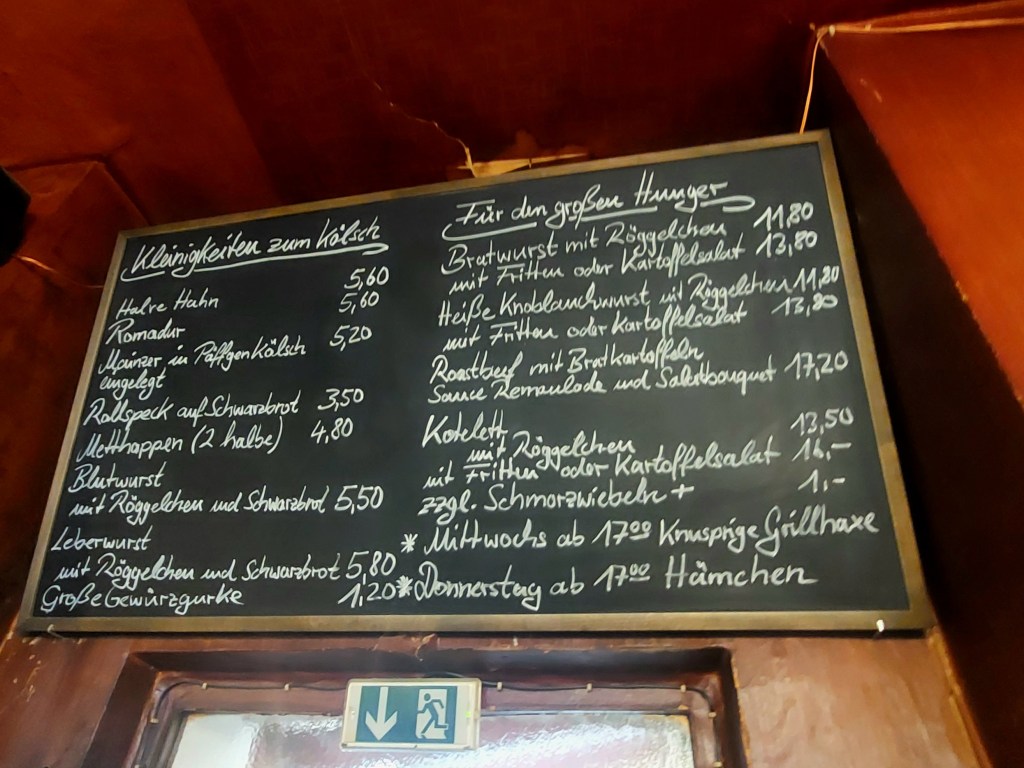 Kleinigkeiten zum Kölsch
Halve Hahn 5,60
Romadur 5,60
Mainzer in Päffgen Kölsch 5,20
eingelegt
Rollspeck auf Schwarzbrot 3,50
Metthappen (2 halbe) 4,80
Blutwurst
mit Röggelchen und Schwarzbrot 5,50
Leberwurst
mit Röggelchen und Schwarzbrot 5,80
Große Gewürzgurke 1,20
Für den großen Hunger
Bratwurst mit Röggelchen 11,80
mit Fritten oder Kartoffelsalat 13,80
Heiße Knoblauchwurst mit Röggelchen 11,80
mit Fritten oder Kartoffelsalat 13,80
Roastbeef mit Bratkartoffeln
Sauce Remoulade und Salatbouquet 17,20
Kotelett
mit Röggelchen 13,50
mit Fritten oder Kartoffelsalat 16,-
zzgl. Schmorzwiebeln + 1,-
* Mittwochs ab 17⁰⁰ Knusprige Grillhaxe
* Donnerstag ab 17⁰⁰ Hämchen